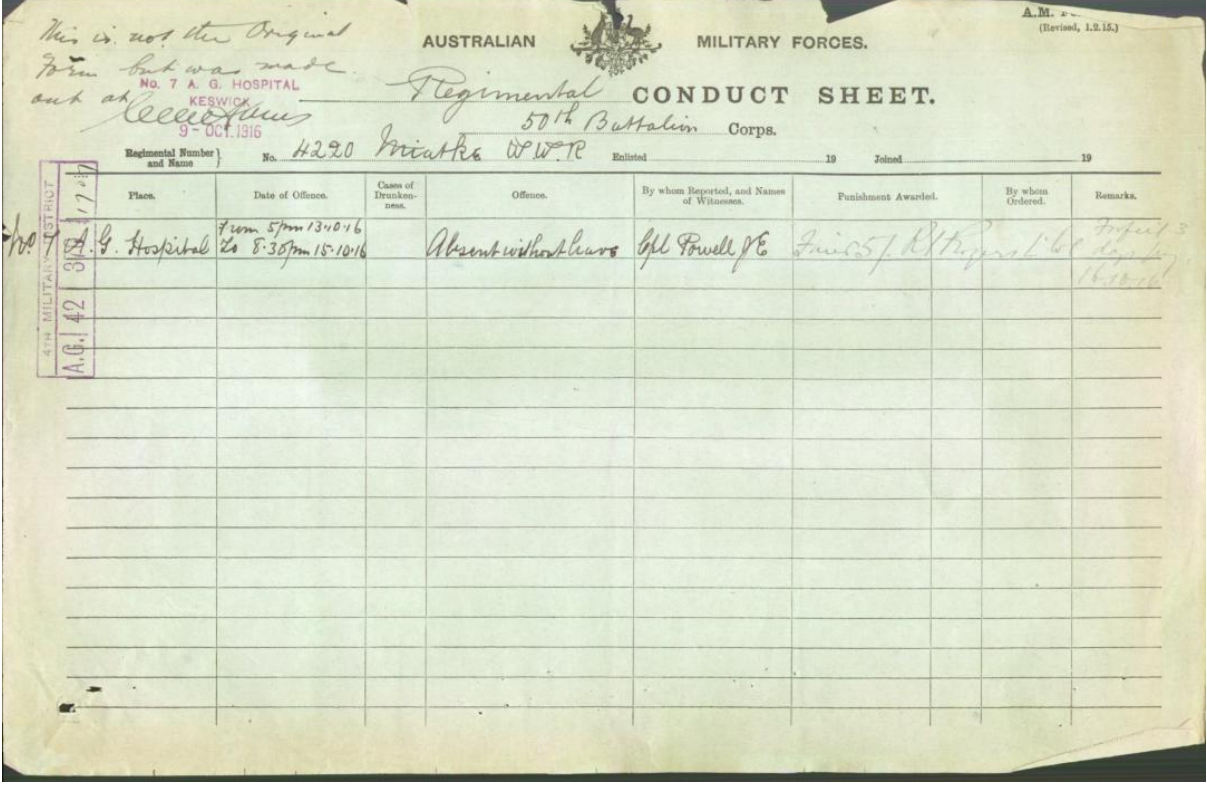 This is not the Original
Form but was made
out at
No. 7 A. G. HOSPITAL
KESWICK
9 - OCT. 1916
A.M.
(Revised, 1.2.15.)
AUSTRALIAN MILITARY FORCES.
Regimental CONDUCT SHEET.
50th Battalion Corps.
Regimental Number and Name } No. 4220 Miatke W.W.R Enlisted 19 Joined 19
Place. Date of Offence. Cases of Drunken-ness. Offence. By whom Reported, and Names of Witnesses. Punishment Awarded. By whom Ordered. Remarks.
No. 7 A.G. Hospital From 5pm 13.10.16 To 8.30pm 15.10.16 Absent without leave Cpl Powell J E Fined 5/. Lt Col Forfeit 3 days pay. 16.10.16
4TH MILITARY DISTRICT
A.G. 42